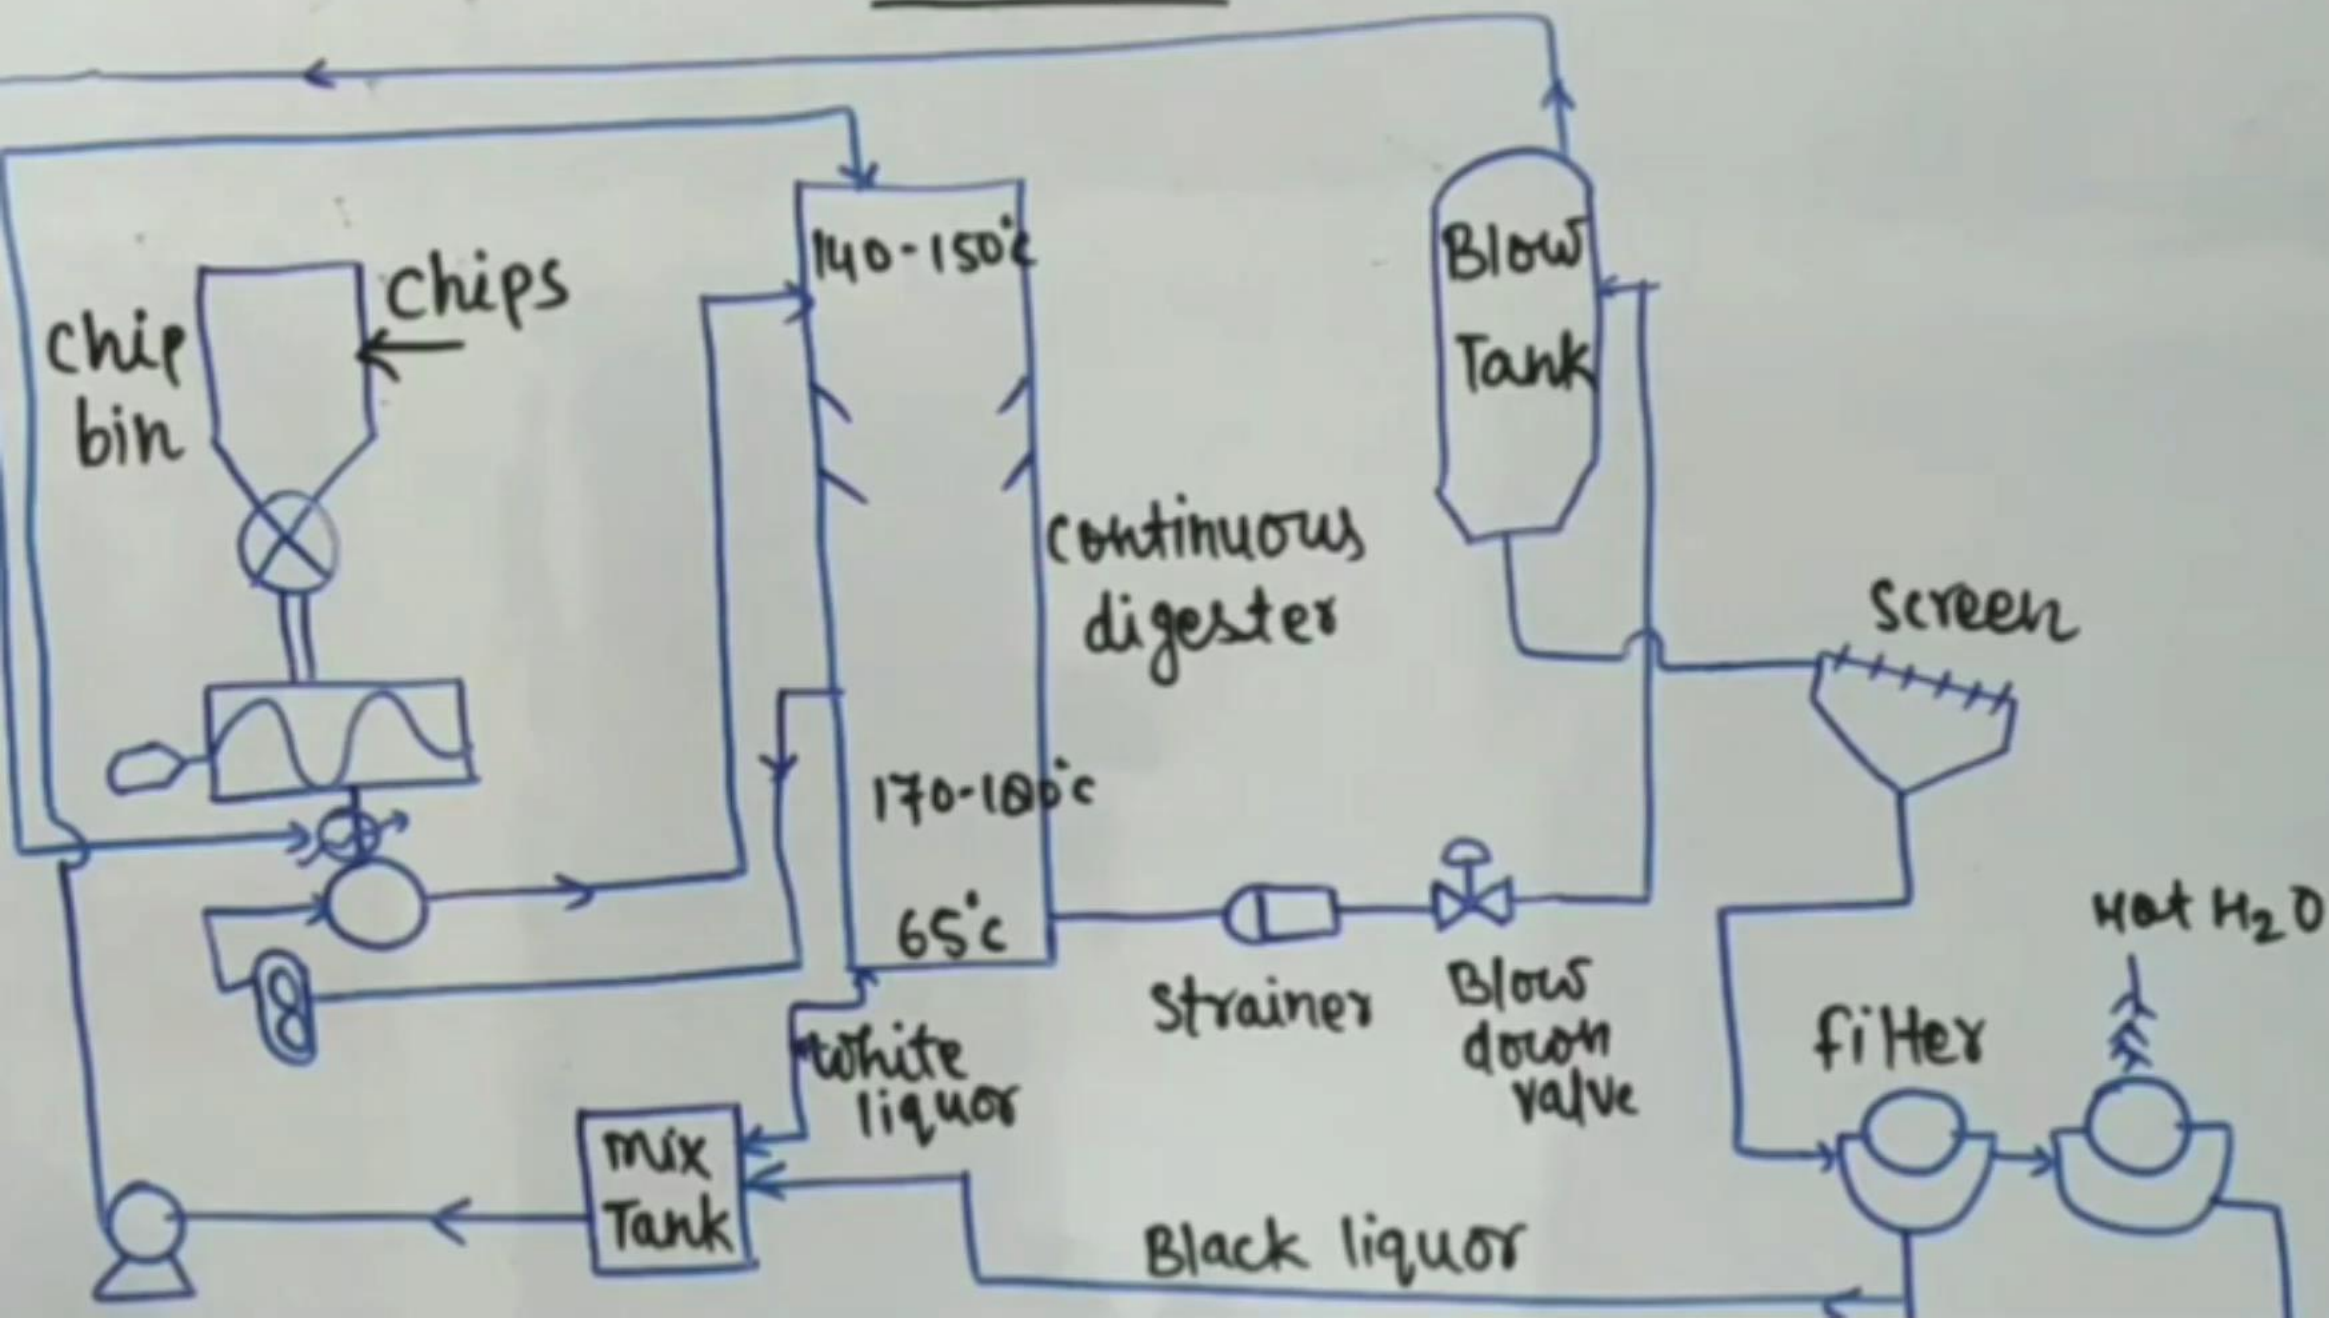 Chips
Chip
bin
140-150°c
Continuous
digester
170-180°c
65°c
Blow
Tank
Screen
Strainer
Blow
down
valve
Hot H₂O
filter
White
liquor
Mix
Tank
Black liquor